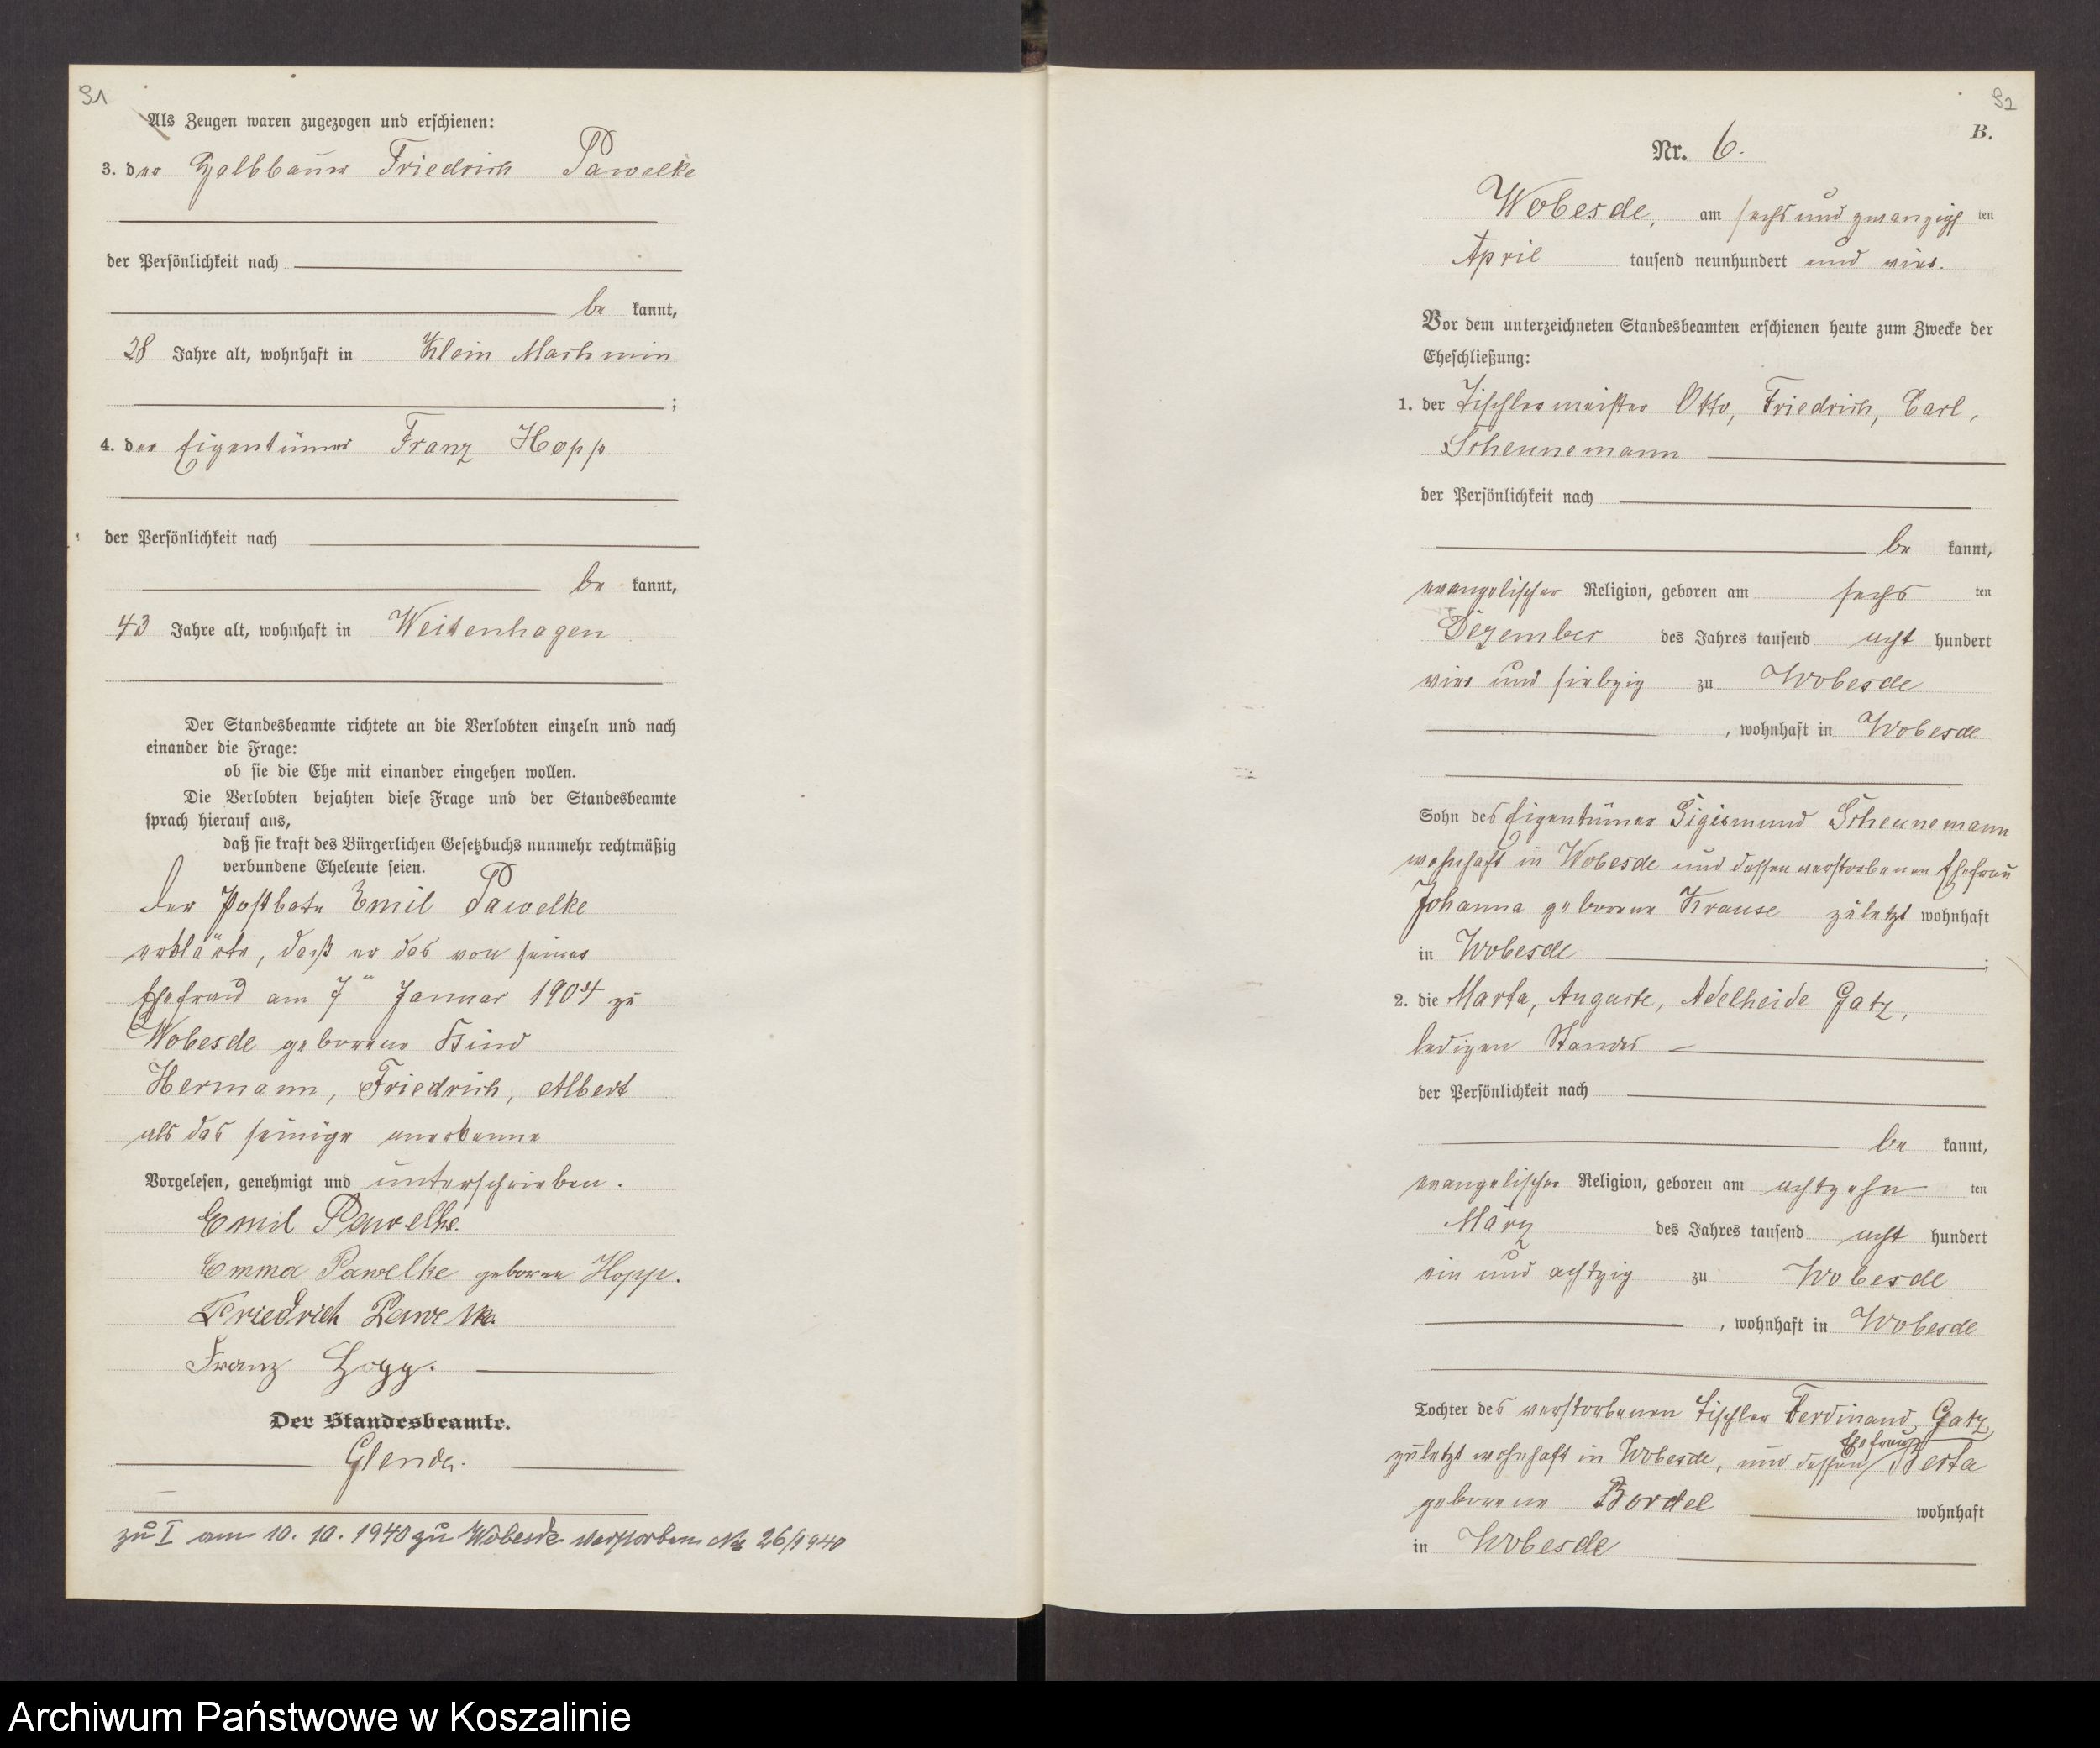 91
Als Zeugen waren zugezogen und erschienen:
3. der Halbbauer Friedrich Pawelke
der Persönlichkeit nach
be kannt,
28 Jahre alt, wohnhaft in Klein Machmin
;
4. der Eigentümer Franz Hopp
der Persönlichkeit nach
be kannt,
43 Jahre alt, wohnhaft in Weitenhagen
Der Standesbeamte richtete an die Verlobten einzeln und nach
einander die Frage:
ob sie die Ehe mit einander eingehen wollen.
Die Verlobten bejahten diese Frage und der Standesbeamte
sprach hierauf aus,
daß sie kraft des Bürgerlichen Gesetzbuchs nunmehr rechtmäßig
verbundene Eheleute seien.
Der Postbote Emil Pawelke
erklärte, daß er das von seiner
Ehefrau am 7ten Januar 1904 zu
Wobesde geborene Kind
Hermann, Friedrich, Albert
als das seinige anerkenne
Vorgelesen, genehmigt und unterschrieben.
Emil Pawelke.
Emma Pawelke geborene Hopp.
Friedrich Pawelke.
Franz Hopp.
Der Standesbeamte.
Glende.
zu I am 10. 10. 1940 zu Wobesde verstorben No 26/1940
92
B.
Nr. 6.
Wobesde, am sechs und zwanzigs ten
April tausend neunhundert und vier.
Vor dem unterzeichneten Standesbeamten erschienen heute zum Zwecke der
Eheschließung:
1. der Tischlermeister Otto, Friedrich, Carl,
Scheunemann
der Persönlichkeit nach
be kannt,
evangelischer Religion, geboren am sechs ten
Dezember des Jahres tausend acht hundert
vier und siebzig zu Wobesde
, wohnhaft in Wobesde
Sohn des Eigentümer Sigismund Scheunemann
wohnhaft in Wobesde und dessen verstorbenen Ehefrau
Johanna geborene Krause zuletzt wohnhaft
in Wobesde ;
2. die Marta, Auguste, Adelheide Gatz,
ledigen Standes
der Persönlichkeit nach
be kannt,
evangelischer Religion, geboren am achtzehn ten
März des Jahres tausend acht hundert
ein und achtzig zu Wobesde
, wohnhaft in Wobesde
Tochter des verstorbenen Tischler Ferdinand Gatz,
zuletzt wohnhaft in Wobesde, und dessen Ehefrau Berta
geborene Bordel wohnhaft
in Wobesde
Archiwum Państwowe w Koszalinie